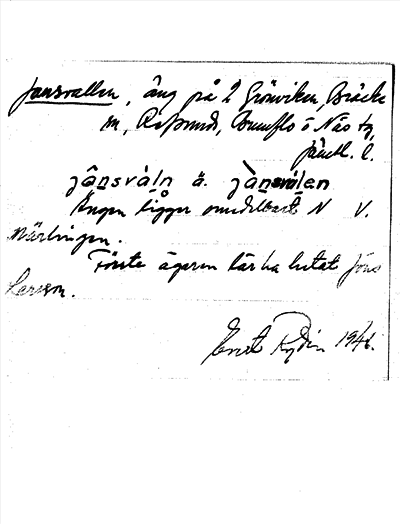 Jonsvallen, äng på 2 Grönviken, Bräcke
sn, Refsunds, Brunflo o Näs tg,
Jämtl. l.
jånsvàln ä. jånsvàlen
Ängen ligger omedelbart N V.
Första ägaren lär ha hetat Jöns
Larsson.
Ernst Rydin 1946.